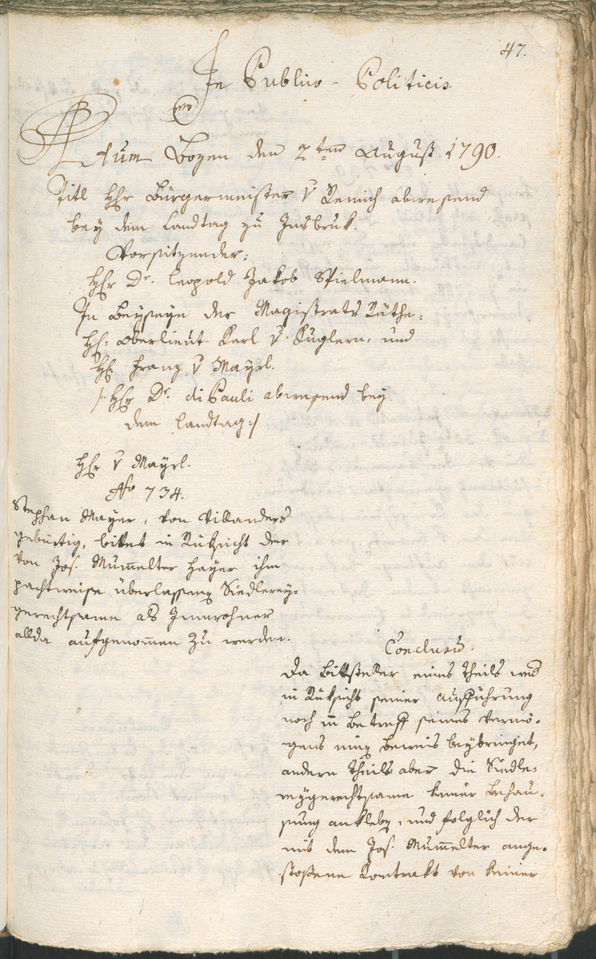 47.
In Publico-Politicis
Actum Bozen den 2ten August 1790.
Titl Hhr Bürgermeister v Remich abwesend
bey dem Landtag zu Insbruk.
Vorsitzender:
Hhr Dr. Leopold Jakob Spielmann.
In Beyseyn der Magistrats Räthe:
Hh: Oberlieut. Karl v Kuglern, und
Hh Franz v Mayrl.
/: Hhr Dr. di Pauli abwesend bey
dem Landtag :/
Hhr v Mayrl.
No 734.
Stephan Mayer, von Villanders
gebürtig, bittet in Rüksicht der
von Jos. Mumelter Hayer ihm
pachtweise überlassenen Siedlerey-
gerechtsame als Innwohner
allda aufgenommen zu werden.
Conclusum.
Da Bittsteller eines Theils
in Rüksicht seiner Aufführung
noch in Betreff seines Vermö-
gens Beweis beybringet,
andern Theils aber die Siedle-
reygerechtsame keiner Behau-
sung anklebe, und folglich der
mit dem Jos. Mumelter ange-
stoßene Kontrakt von keiner